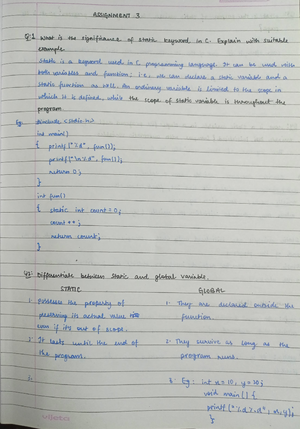 ASSIGNMENT 3
Q.1 What is the significance of static keyword in C. Explain with suitable
example.
Static is a keyword used in C programming language. It can be used with
both variables and functions, i.e., we can declare a static variable and a
static function as well. An ordinary variable is limited to the scope in
which it is defined, while the scope of static variable is throughout the
program.
Eg. #include <stdio.h>
int main()
{ printf("%d", fun());
printf("\n%d", fun());
return 0;
}
int fun()
{ static int count = 0;
count ++;
return count;
}
Q2. Differentiate between static and global variable.
STATIC GLOBAL
1. Possess the property of 1. They are declared outside the
preserving its actual value function.
even if its out of scope.
2. It lasts until the end of 2. They survive as long as the
the program. program runs.
3. 3. Eg: int x=10, y=20;
void main() {
printf("%d %d", x, y);
}